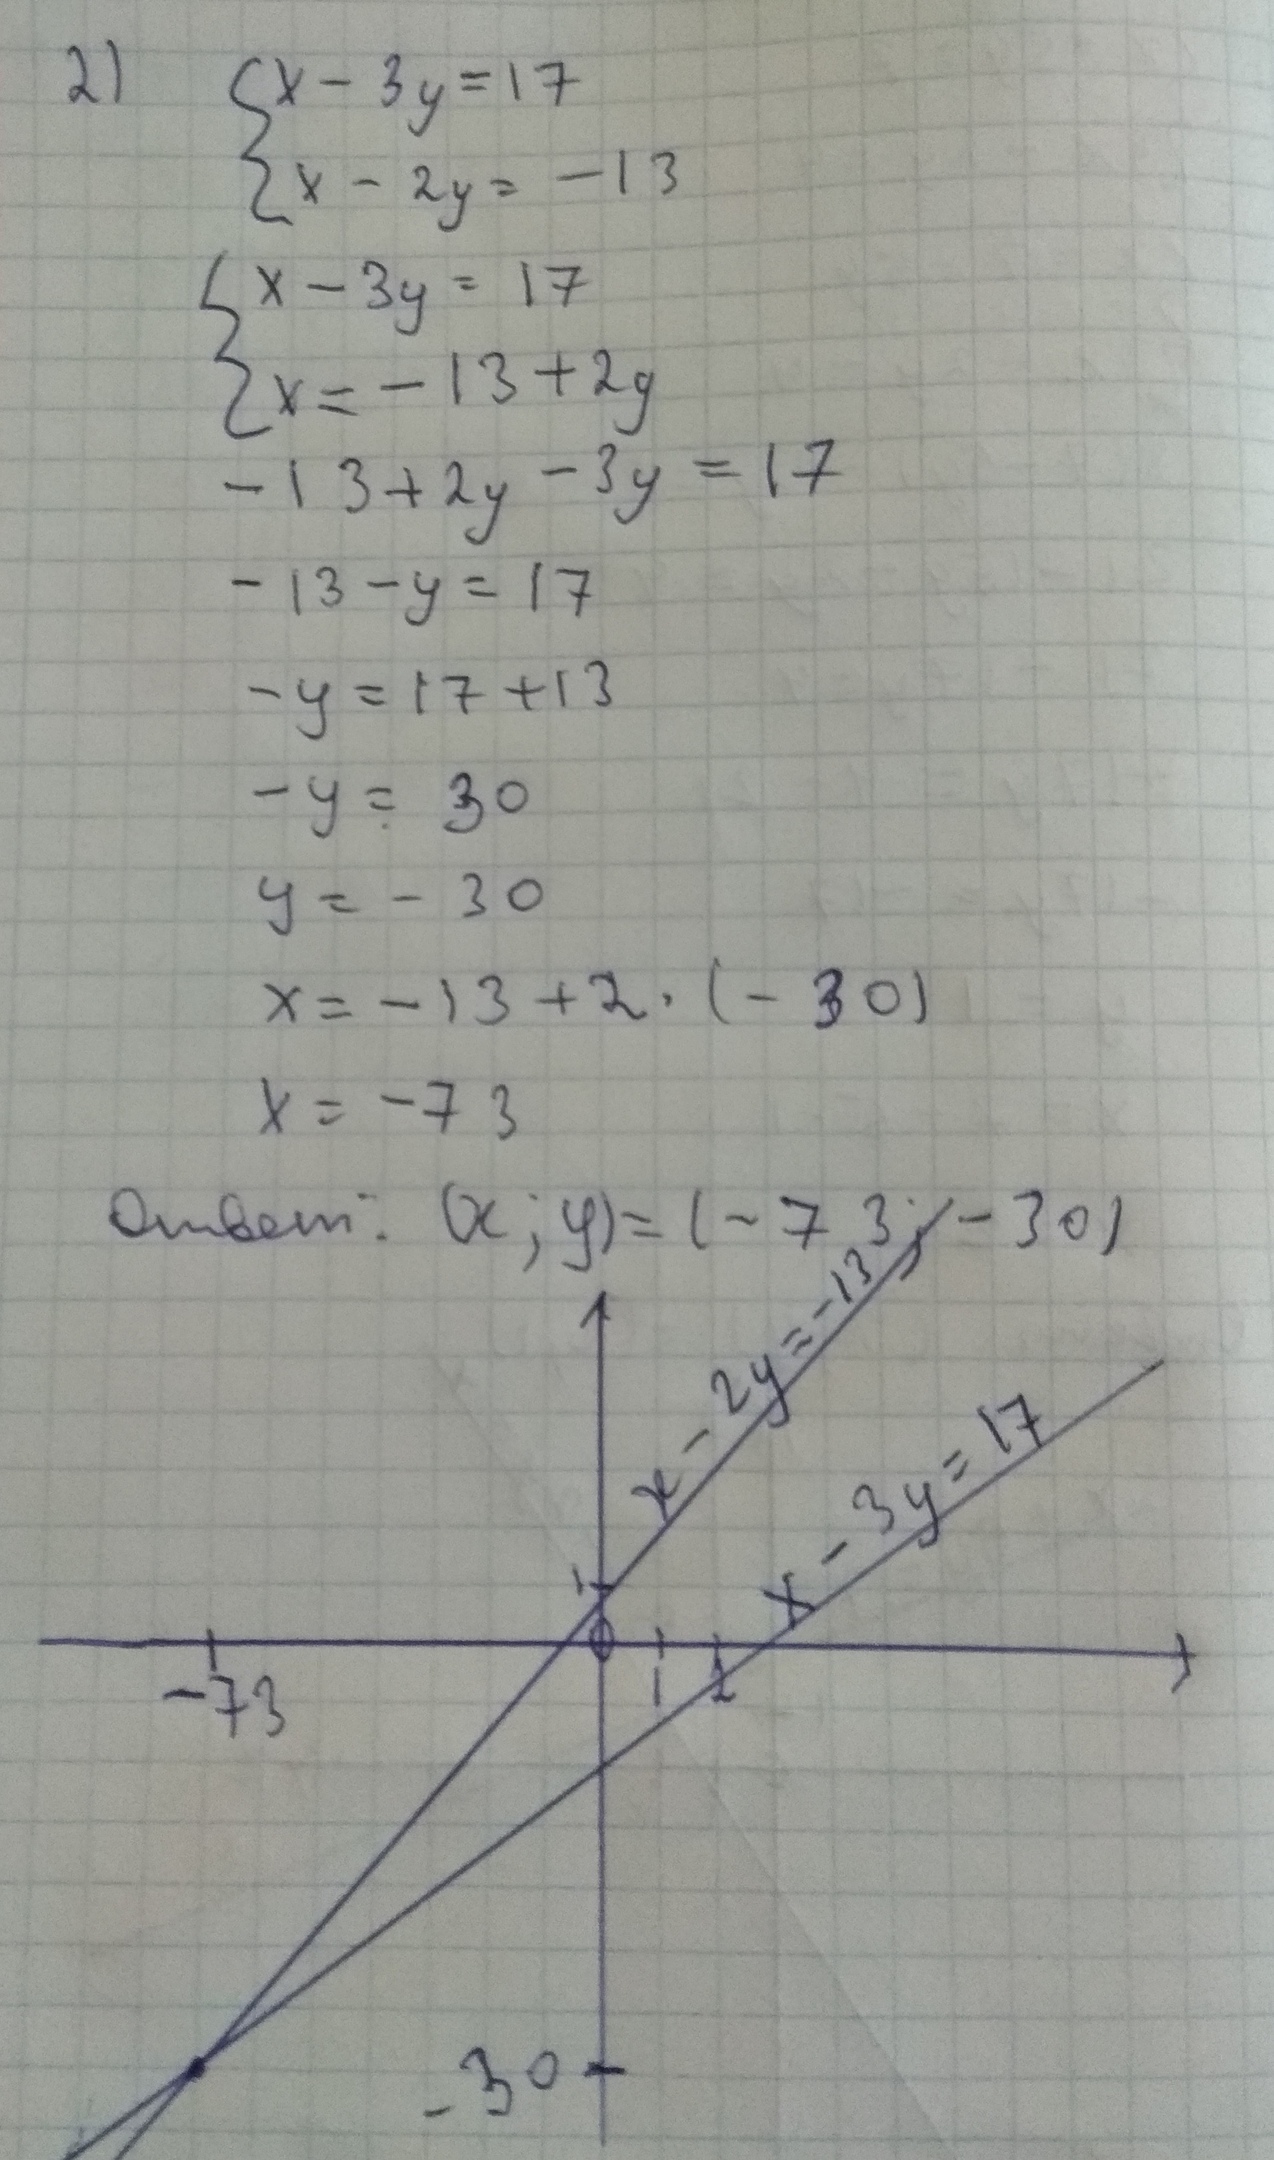 2)
{x - 3y = 17
{x - 2y = -13
{x - 3y = 17
{x = -13 + 2y
-13 + 2y - 3y = 17
-13 - y = 17
-y = 17 + 13
-y = 30
y = -30
x = -13 + 2 · (-30)
x = -73
Ответ: (x; y) = (-73; -30)
x - 2y = -13
x - 3y = 17
1
0
1
2
-73
-30